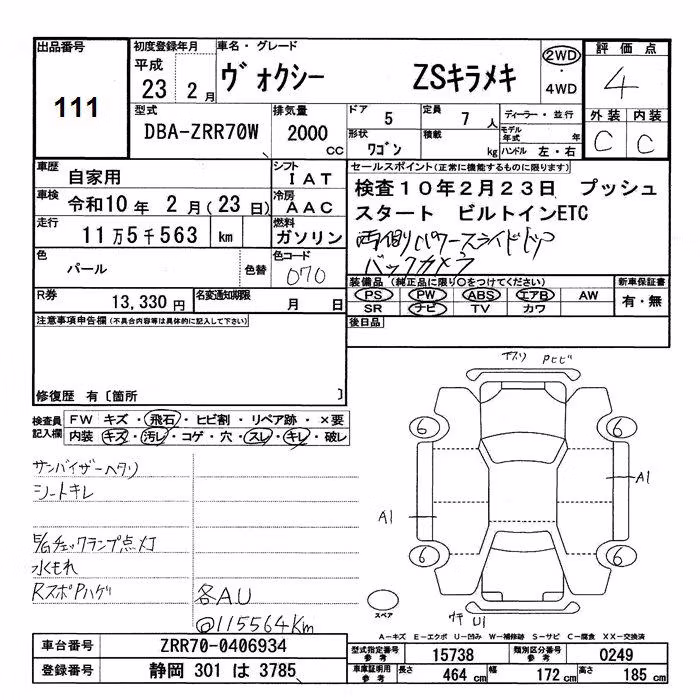 出品番号
111
初度登録年月
平成
23 2月
車名・グレード
ヴォクシー ZSキラメキ
2WD
・
4WD
評価点
4
外装 内装
C C
型式
DBA-ZRR70W
排気量
2000
cc
ドア 5
定員 7 人
ディーラー・並行
形状 ワゴン
積載 kg
モデル年式 年
ハンドル 左・右
車歴 自家用
シフト IAT
車検 令和10年 2月(23日)
冷房 AAC
走行 11万5千563 km
燃料 ガソリン
色 パール
色替
色コード 070
R券 13,330円
名変通知期限 月 日
セールスポイント(正常に機能するものに限ります)
検査10年2月23日 プッシュ
スタート ビルトインETC
両側パワースライドドア
バックカメラ
装備品(純正品に限り○をつけてください)
PS PW ABS エアB AW
SR ナビ TV カワ
新車保証書
有・無
後日品
注意事項申告欄(不具合内容等は具体的に記入して下さい)
修復歴 有〔箇所 〕
検査員記入欄
FW キズ・飛石・ヒビ割・リペア跡・×要
内装 キズ・汚レ・コゲ・穴・スレ・キレ・破レ
サンバイザーヘタリ
シートキレ
E/Gチェックランプ点灯
水もれ
RスポPハゲ
各AU
@115564Km
Pヒビ
6 6
A1
A1
6 6
スペア
U1
A-キズ E-エクボ U-凹み W-補修跡 S-サビ C-腐食 XX-交換済
車台番号 ZRR70-0406934
登録番号 静岡 301 は 3785
型式指定番号 参考 15738
類別区分番号 参考 0249
車庫証明用 参考 長さ 464 cm 幅 172 cm 高さ 185 cm